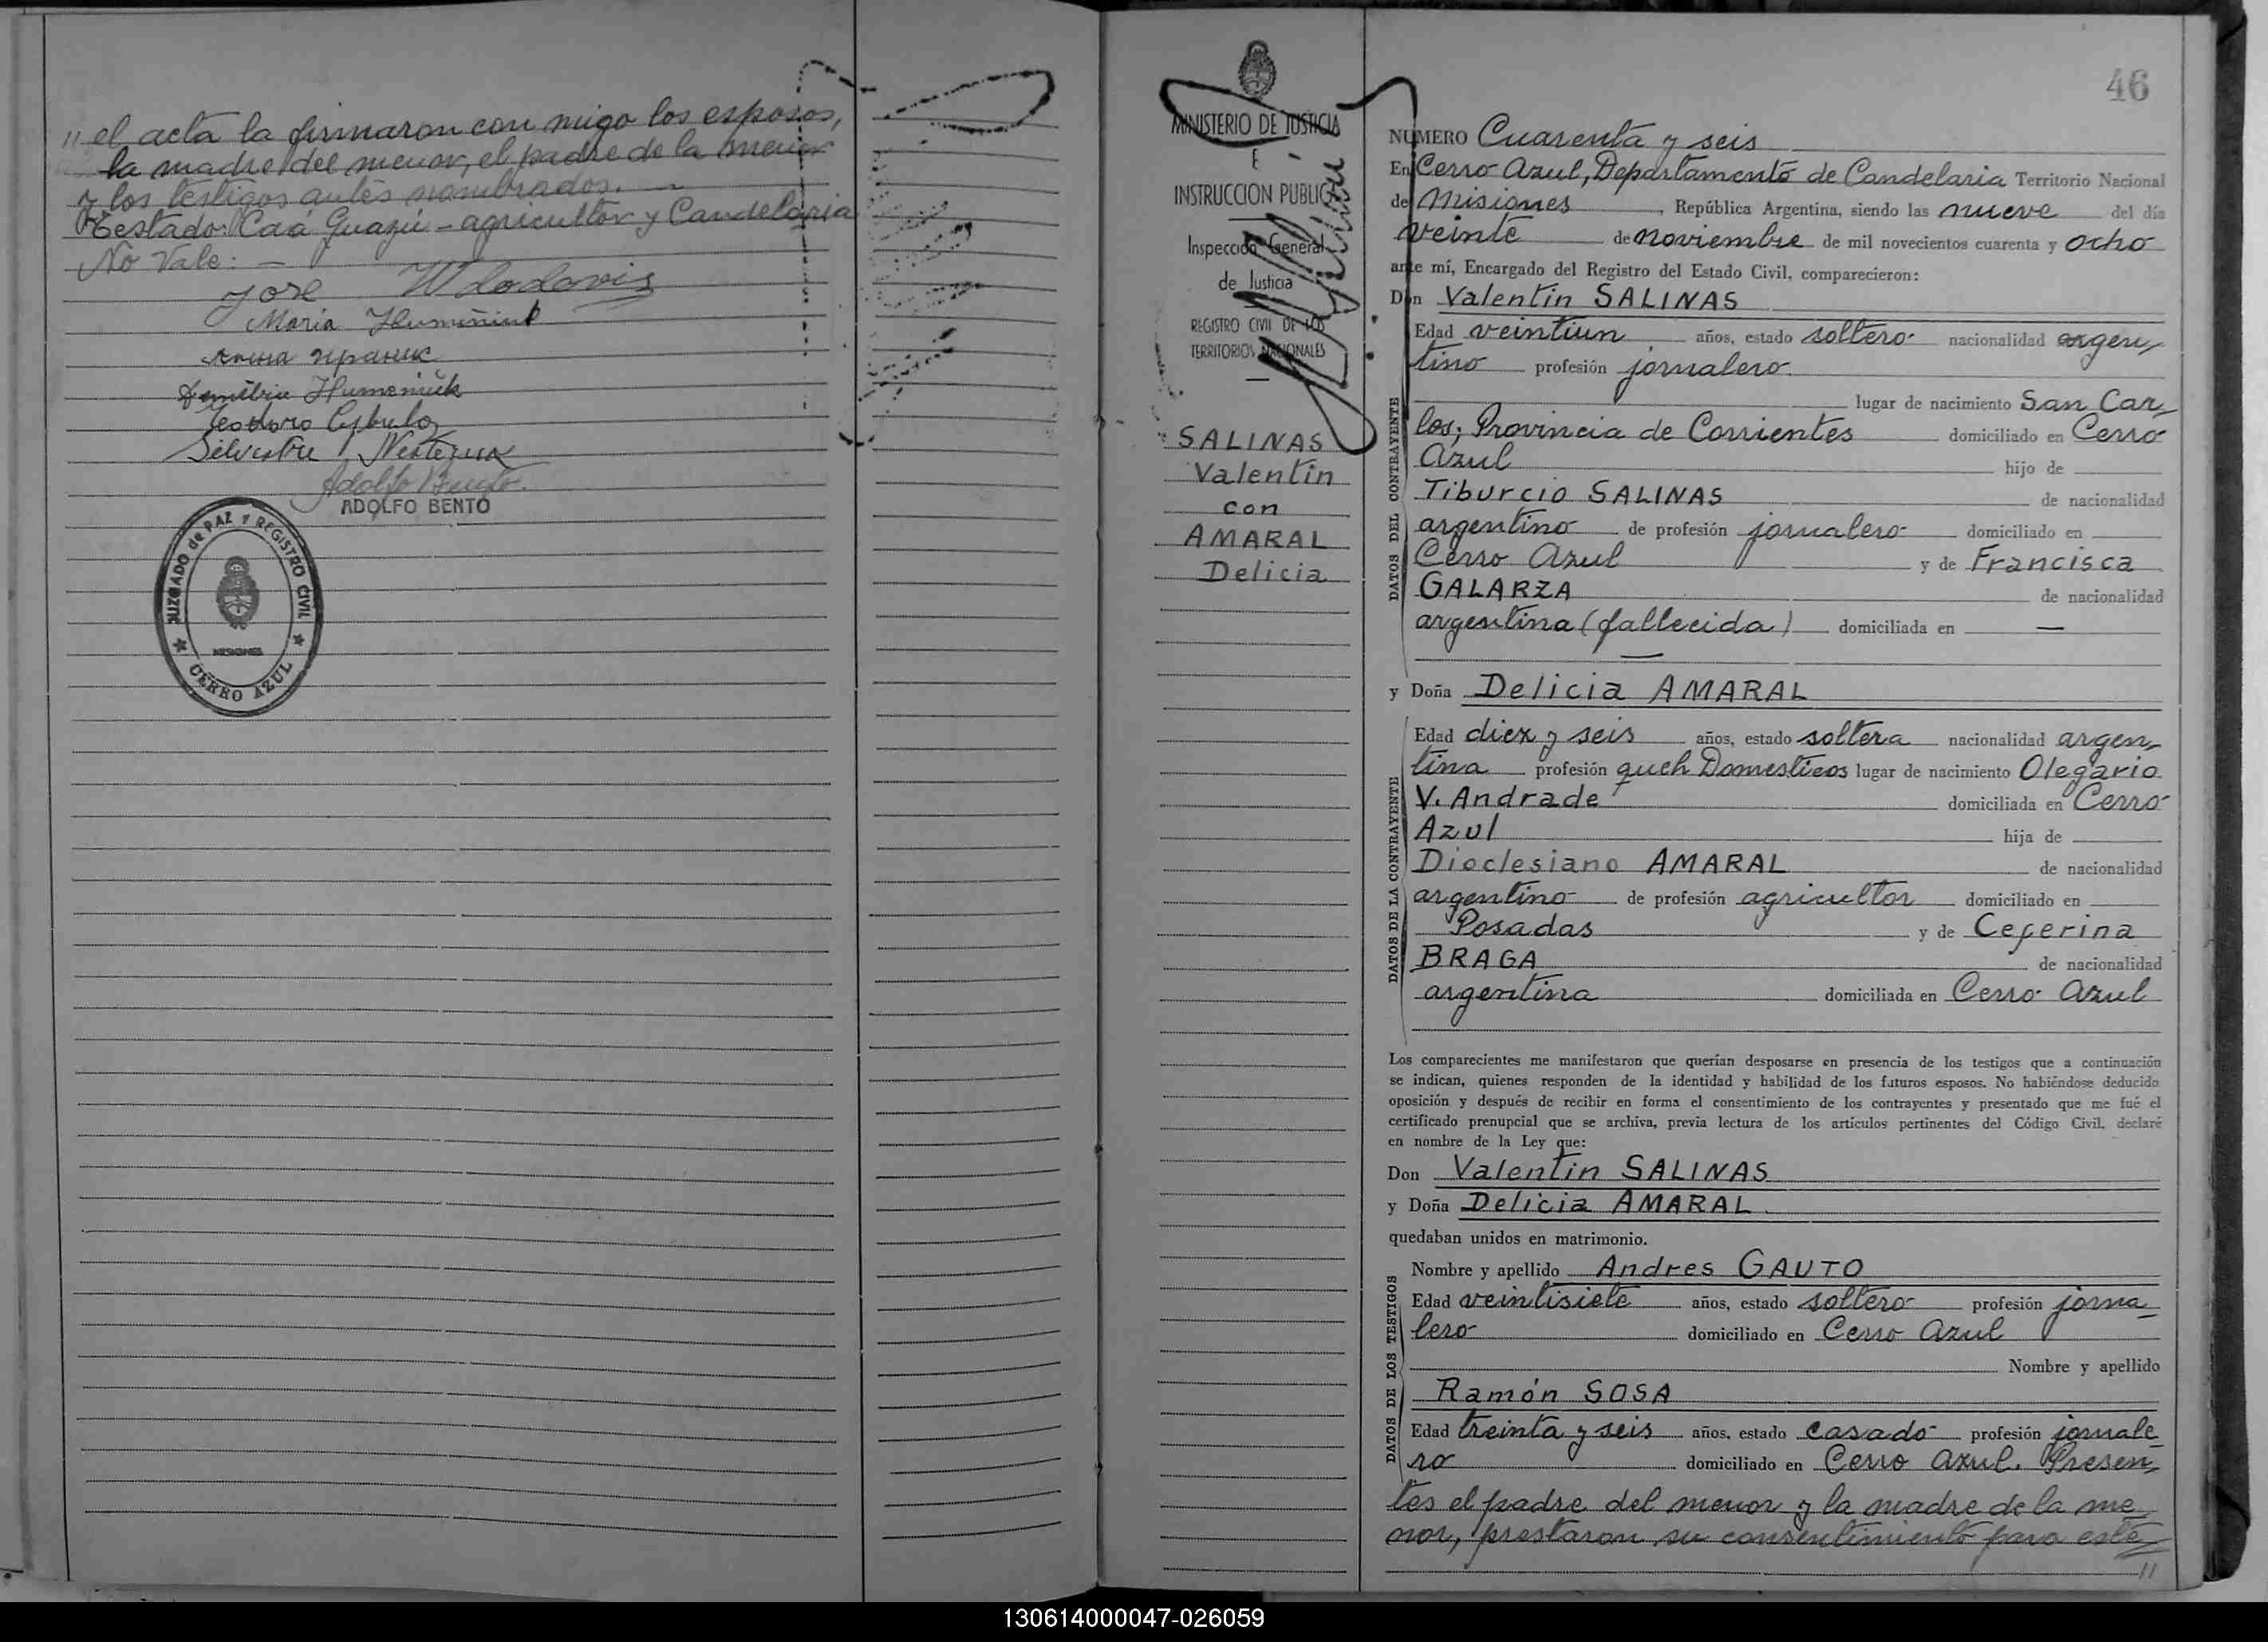 // el acta la firmaron con migo los esposos,
la madre del menor, el padre de la menor
y los testigos antes nombrados. —
Testado: Caá Guazú - agricultor y Candelaria
No Vale: —
José Wlodovis
Maria Humeñiuk
Humeniuk
Teodoro Cybulo
Silvestre
Adolfo Bento
ADOLFO BENTO
JUZGADO de PAZ Y REGISTRO CIVIL
MISIONES
CERRO AZUL
MINISTERIO DE JUSTICIA
E
INSTRUCCION PUBLICA
Inspección General
de Justicia
REGISTRO CIVIL DE LOS
TERRITORIOS NACIONALES
SALINAS
Valentin
con
AMARAL
Delicia
46
NUMERO Cuarenta y seis
En Cerro Azul, Departamento de Candelaria Territorio Nacional
de Misiones, República Argentina, siendo las nueve del día
veinte de noviembre de mil novecientos cuarenta y ocho
ante mí, Encargado del Registro del Estado Civil, comparecieron:
Don Valentin SALINAS
DATOS DEL CONTRAYENTE
Edad veintiun años, estado soltero nacionalidad argen,
tino profesión jornalero
lugar de nacimiento San Car,
los; Provincia de Corrientes domiciliado en Cerro
Azul hijo de
Tiburcio SALINAS de nacionalidad
argentino de profesión jornalero domiciliado en
Cerro Azul y de Francisca
GALARZA de nacionalidad
argentina (fallecida) domiciliada en —
—
y Doña Delicia AMARAL
DATOS DE LA CONTRAYENTE
Edad diez y seis años, estado soltera nacionalidad argen,
tina profesión queh Domesticos lugar de nacimiento Olegario
V. Andrade domiciliada en Cerro
Azul hija de
Dioclesiano AMARAL de nacionalidad
argentino de profesión agricultor domiciliado en
Posadas y de Ceferina
BRAGA de nacionalidad
argentina domiciliada en Cerro Azul
Los comparecientes me manifestaron que querían desposarse en presencia de los testigos que a continuación
se indican, quienes responden de la identidad y habilidad de los futuros esposos. No habiéndose deducido
oposición y después de recibir en forma el consentimiento de los contrayentes y presentado que me fué el
certificado prenupcial que se archiva, previa lectura de los artículos pertinentes del Código Civil, declaré
en nombre de la Ley que:
Don Valentin SALINAS
y Doña Delicia AMARAL
quedaban unidos en matrimonio.
DATOS DE LOS TESTIGOS
Nombre y apellido Andres GAUTO
Edad veintisiete años, estado soltero profesión jorna
lero domiciliado en Cerro Azul
Nombre y apellido
Ramón SOSA
Edad treinta y seis años, estado casado profesión jornale
ro domiciliado en Cerro Azul. Presen,
tes el padre del menor y la madre de la me
nor, prestaron su consentimiento para este
//
130614000047-026059